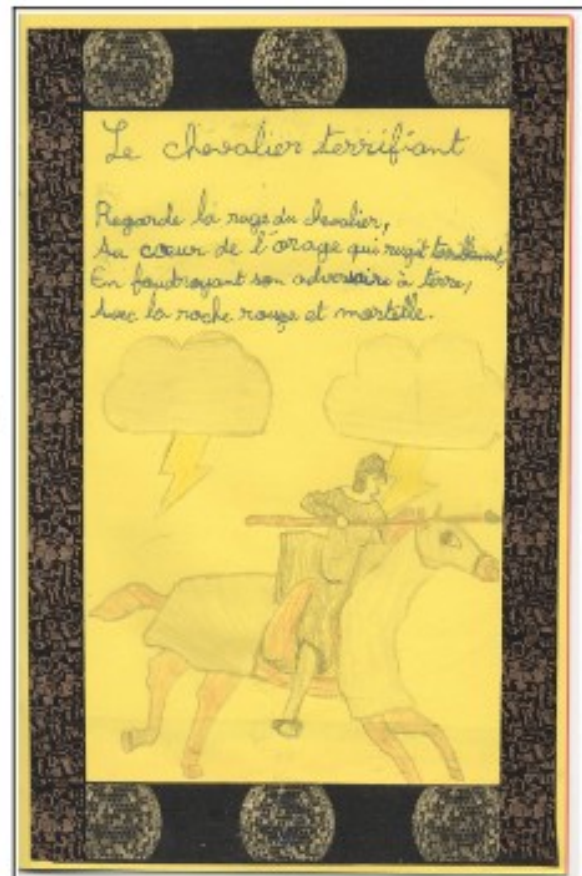 Le chevalier terrifiant
Regarde la rage du chevalier,
Au cœur de l'orage qui rugit
En foudroyant son adversaire à terre,
Avec la roche rouge et mortelle.